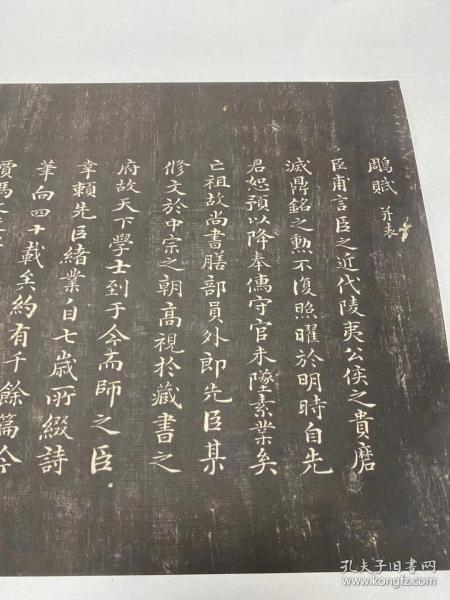 鵰賦 并表
臣甫言臣之近代陵夷公侯之貴磨
滅鼎銘之勳不復照曜於明時自先
君恕預以降奉儒守官未墜素業矣
亡祖故尚書膳部員外郎先臣某
修文於中宗之朝高視於藏書之
府故天下學士到于今而師之臣
幸賴先臣緒業自七歲所綴詩
筆向四十載矣約有千餘篇今
賈馬之
孔夫子旧书网
www.kongfz.com